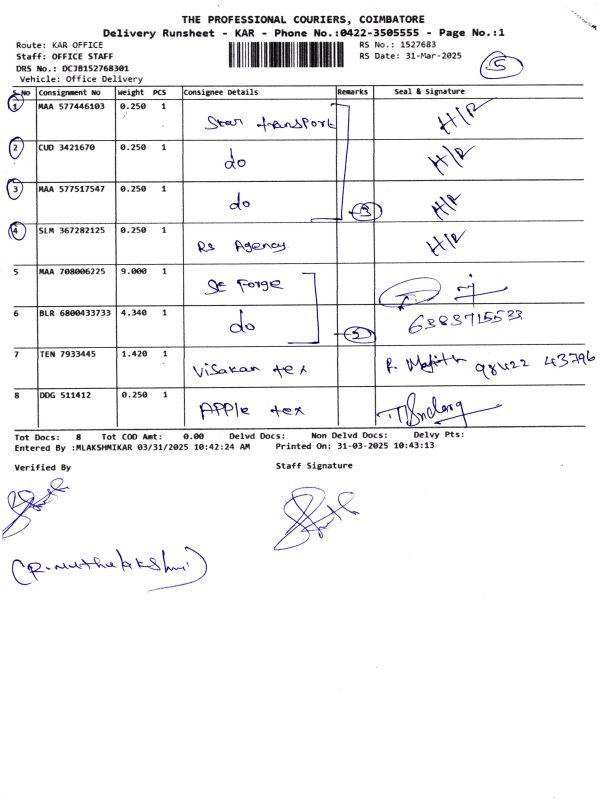 THE PROFESSIONAL COURIERS, COIMBATORE
Delivery Runsheet - KAR - Phone No.:0422-3505555 - Page No.:1
Route: KAR OFFICE RS No.: 1527683
Staff: OFFICE STAFF RS Date: 31-Mar-2025
DRS No.: DCJB152768301
Vehicle: Office Delivery
5
S.No Consignment No Weight PCS Consignee Details Remarks Seal & Signature
1 MAA 577446103 0.250 1 Star transport H/R
2 CUD 3421670 0.250 1 do H/R
3 MAA 577517547 0.250 1 do 3 H/R
4 SLM 367282125 0.250 1 Rs Agency H/R
5 MAA 708006225 9.000 1 Forge
6 BLR 6800433733 4.340 1 do 2 6383715533
7 TEN 7933445 1.420 1 Visakan tex R. 98422 43796
8 DDG 511412 0.250 1 APPle tex
Tot Docs: 8 Tot COD Amt: 0.00 Delvd Docs: Non Delvd Docs: Delvy Pts:
Entered By :MLAKSHMIKAR 03/31/2025 10:42:24 AM Printed On: 31-03-2025 10:43:13
Verified By Staff Signature
(R. muthulakshmi)